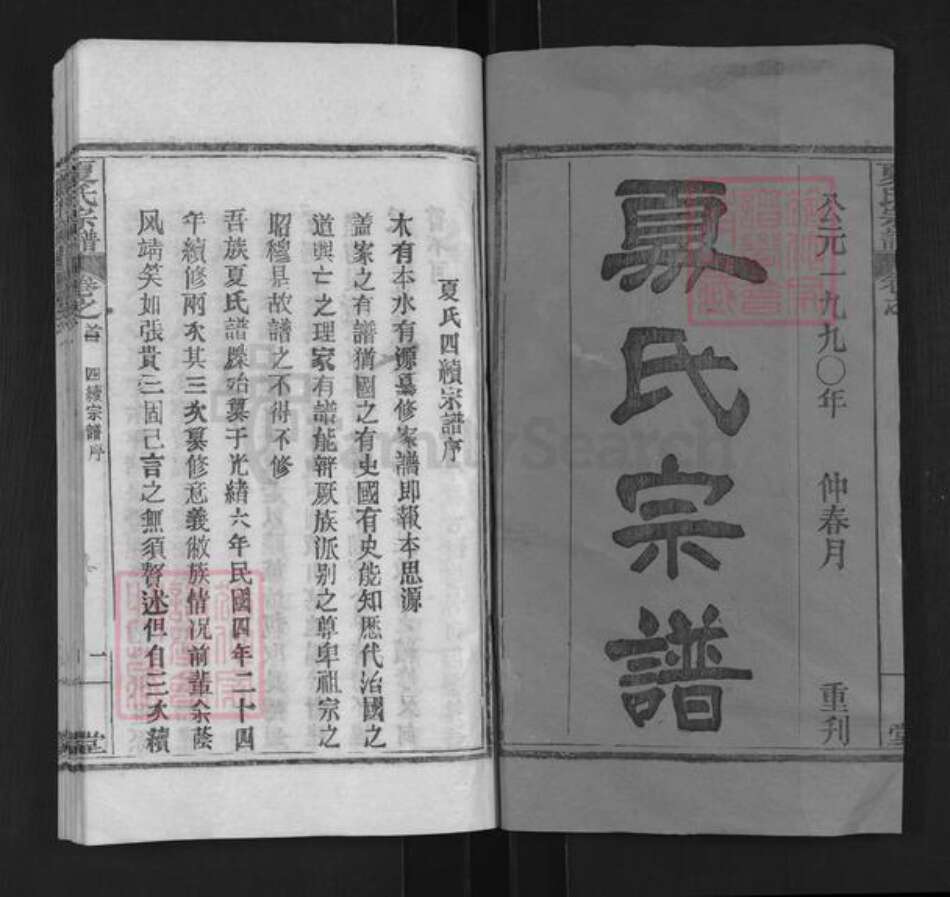 公元一九九〇年 仲春月 重刊
夏氏宗譜
夏氏宗譜
夏氏四續宗譜序
木有本水有源纂修家譜即報本思源
蓋家之有譜猶國之有史國有史能知歷代治國之
道興亡之理家有譜能辨厥族派别之尊卑祖宗之
昭穆是故譜之不得不修
吾族夏氏譜牒始纂于光緒六年民國四年二十四
年續修兩次其三次纂修意義徹族情况前輩余蔭
风靖笑如張貴三固己言之無須贅述但自三次續
夏氏宗譜 卷之首 四續宗譜序 一 堂
FamilySearch